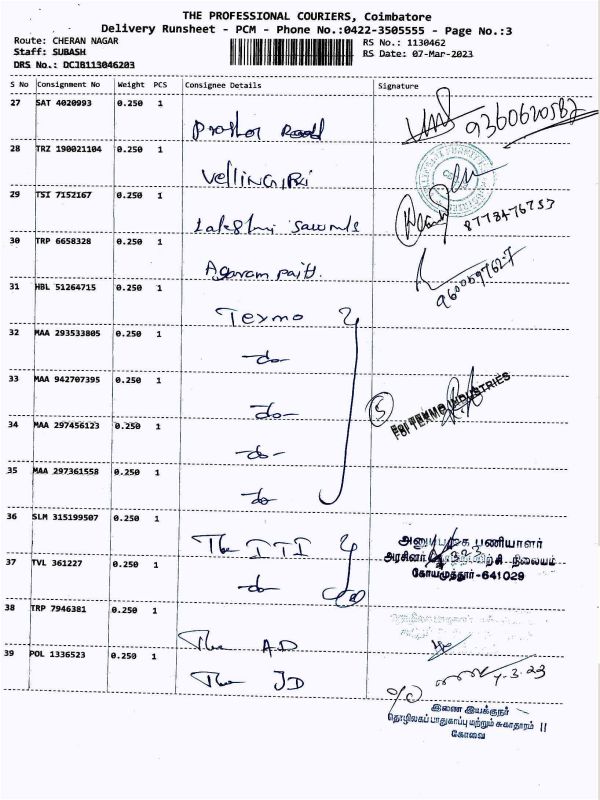 THE PROFESSIONAL COURIERS, Coimbatore
Delivery Runsheet - PCM - Phone No.:0422-3505555 - Page No.:3
Route: CHERAN NAGAR
RS No.: 1130462
Staff: SUBASH
RS Date: 07-Mar-2023
DRS No.: DCJB113046203
S No Consignment No Weight PCS Consignee Details Signature
27 SAT 4020993 0.250 1
9360620582
28 TRZ 190021104 0.250 1
Vellingiri
29 TSI 7152167 0.250 1
Lakshmi Sawmls
8778476753
30 TRP 6658328 0.250 1
Agarampatt.
9600597627
31 HBL 51264715 0.250 1
Texmo
32 MAA 293533805 0.250 1
-do-
33 MAA 942707395 0.250 1
-do-
5
For TEXMO INDUSTRIES
34 MAA 297456123 0.250 1
-do-
35 MAA 297361558 0.250 1
-do-
36 SLM 315199507 0.250 1
The ITI
பணியாளர்
நிலையம்
கோயமுத்தூர்-641029
37 TVL 361227 0.250 1
-do-
38 TRP 7946381 0.250 1
The AD
39 POL 1336523 0.250 1
The JD
7.3.23
இணை இயக்குநர்
தொழிலகப் பாதுகாப்பு மற்றும் சுகாதாரம் II
கோவை